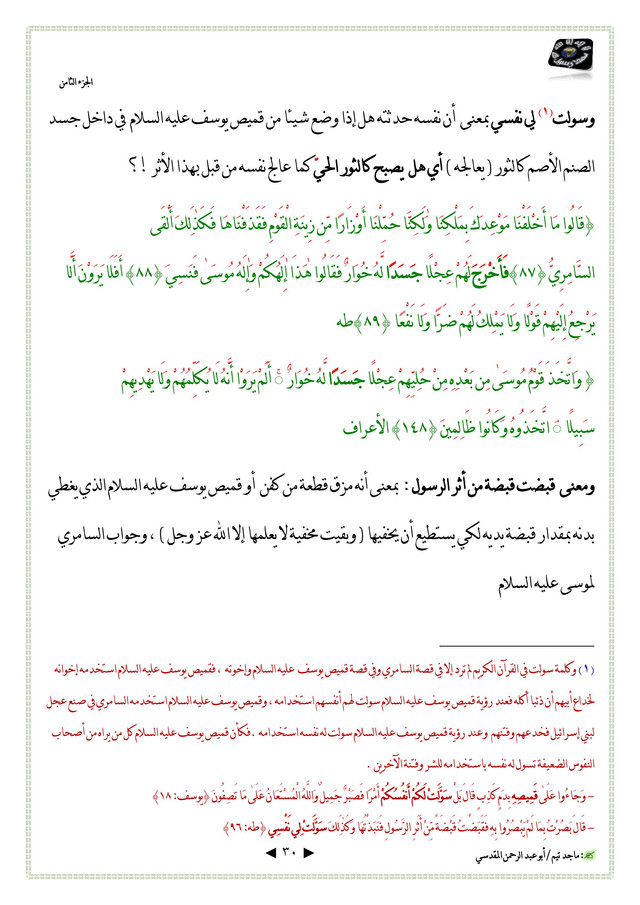 الجزء الثامن
وسولت(١) لي نفسي بمعنى أن نفسه حدثته هل إذا وضع شيئا من قميص يوسف عليه السلام في داخل جسد
الصنم الأصم كالثور ( يعالجه ) أي هل يصبح كالثور الحيّ كما عالج نفسه من قبل بهذا الأثر !؟
﴿قَالُوا مَا أَخْلَفْنَا مَوْعِدَكَ بِمَلْكِنَا وَلَٰكِنَّا حُمِّلْنَا أَوْزَارًا مِّن زِينَةِ الْقَوْمِ فَقَذَفْنَاهَا فَكَذَٰلِكَ أَلْقَى
السَّامِرِيُّ ﴿٨٧﴾ فَأَخْرَجَ لَهُمْ عِجْلًا جَسَدًا لَّهُ خُوَارٌ فَقَالُوا هَٰذَا إِلَٰهُكُمْ وَإِلَٰهُ مُوسَىٰ فَنَسِيَ ﴿٨٨﴾ أَفَلَا يَرَوْنَ أَلَّا
يَرْجِعُ إِلَيْهِمْ قَوْلًا وَلَا يَمْلِكُ لَهُمْ ضَرًّا وَلَا نَفْعًا ﴿٨٩﴾ طه
﴿ وَاتَّخَذَ قَوْمُ مُوسَىٰ مِن بَعْدِهِ مِنْ حُلِيِّهِمْ عِجْلًا جَسَدًا لَّهُ خُوَارٌ ۚ أَلَمْ يَرَوْا أَنَّهُ لَا يُكَلِّمُهُمْ وَلَا يَهْدِيهِمْ
سَبِيلًا ۘ اتَّخَذُوهُ وَكَانُوا ظَالِمِينَ ﴿١٤٨﴾ الأعراف
ومعنى قبضت قبضة من أثر الرسول : بمعنى أنه مزق قطعة من كفن أو قميص يوسف عليه السلام الذي يغطي
بدنه بمقدار قبضة يديه لكي يستطيع أن يخفيها ( وبقيت مخفية لا يعلمها إلا الله عز وجل ) ، وجواب السامري
لموسى عليه السلام
(١) وكلمة سولت في القرآن الكريم لم ترد إلا في قصة السامري وفي قصة قميص يوسف عليه السلام وإخوته ، فقميص يوسف عليه السلام استخدمه إخوانه
لخداع أبيهم أن ذئبا أكله فعند رؤية قميص يوسف عليه السلام سولت لهم أنفسهم استخدامه ، وقميص يوسف عليه السلام استخدمه السامري في صنع عجل
لبني إسرائيل فخدعهم وفتنهم وعند رؤية قميص يوسف عليه السلام سولت له نفسه استخدامه . فكأن قميص يوسف عليه السلام كل من يراه من أصحاب
النفوس الضعيفة تسول له نفسه باستخدامه للشر وفتنة الآخرين .
- وَجَاءُوا عَلَىٰ قَمِيصِهِ بِدَمٍ كَذِبٍ قَالَ بَلْ سَوَّلَتْ لَكُمْ أَنفُسُكُمْ أَمْرًا فَصَبْرٌ جَمِيلٌ وَاللَّهُ الْمُسْتَعَانُ عَلَىٰ مَا تَصِفُونَ ﴿يوسف: ١٨﴾
- قَالَ بَصُرْتُ بِمَا لَمْ يَبْصُرُوا بِهِ فَقَبَضْتُ قَبْضَةً مِّنْ أَثَرِ الرَّسُولِ فَنَبَذْتُهَا وَكَذَٰلِكَ سَوَّلَتْ لِي نَفْسِي ﴿طه: ٩٦﴾
ماجد تيم / أبو عبد الرحمن المقدسي
◄ ٣٠ ►